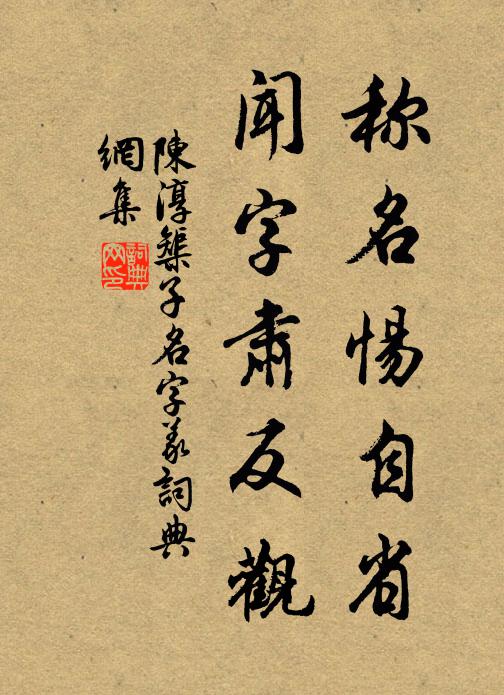 称名惕自省
聞字肅反觀
陳淳榘子名字義詞典
網集
詞典
网印